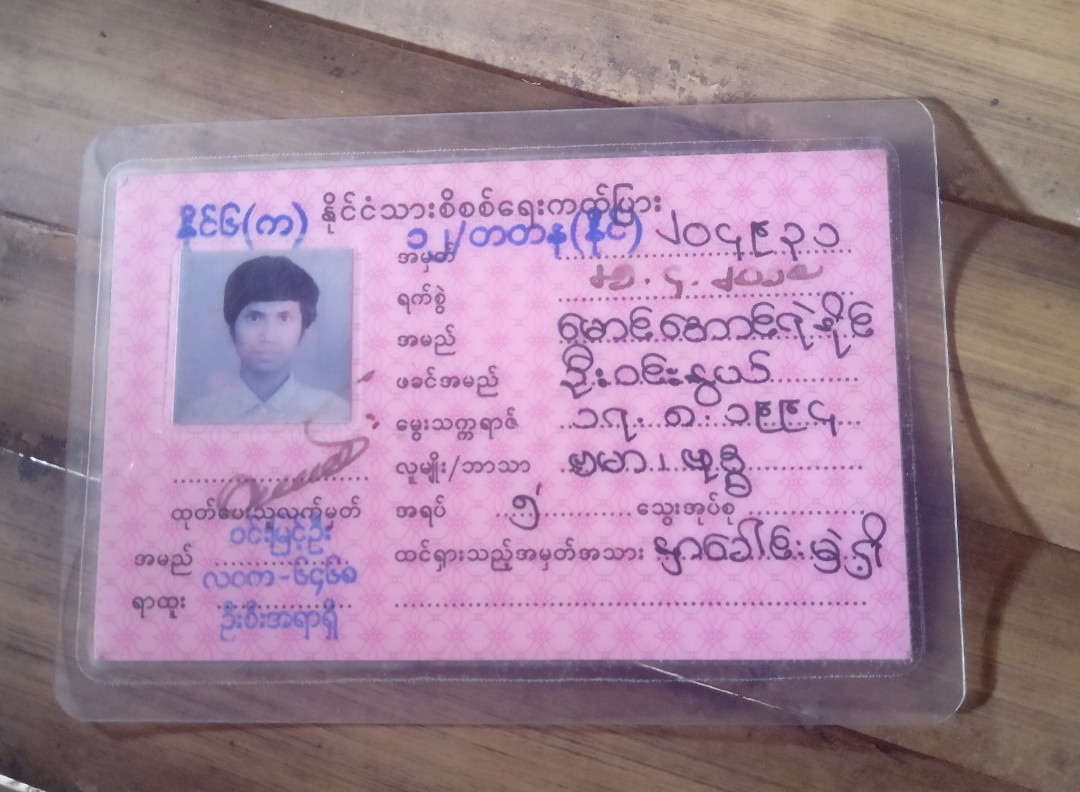 နိုင်ငံသားစိစစ်ရေးကတ်ပြား
နိုင်၆(က)
အမှတ် ၁၂/တတန(နိုင်) ၂၀၄၉၃၁
ရက်စွဲ
အမည် မောင်အောင်ရဲနိုင်
ဖခင်အမည် ဦးဝင်းနွယ်
မွေးသက္ကရာဇ် ၁၇.၈.၁၉၉၄
လူမျိုး/ဘာသာ ဗမာ၊ ဗုဒ္ဓ
အရပ် ၅' သွေးအုပ်စု
ထင်ရှားသည့်အမှတ်အသား နှာခေါင်း မှဲ့ရှိ
ထုတ်ပေးသူလက်မှတ်
အမည် ဝင်းမြင့်ဦး
လဝက-၆၄၆၈
ရာထူး ဦးစီးအရာရှိ